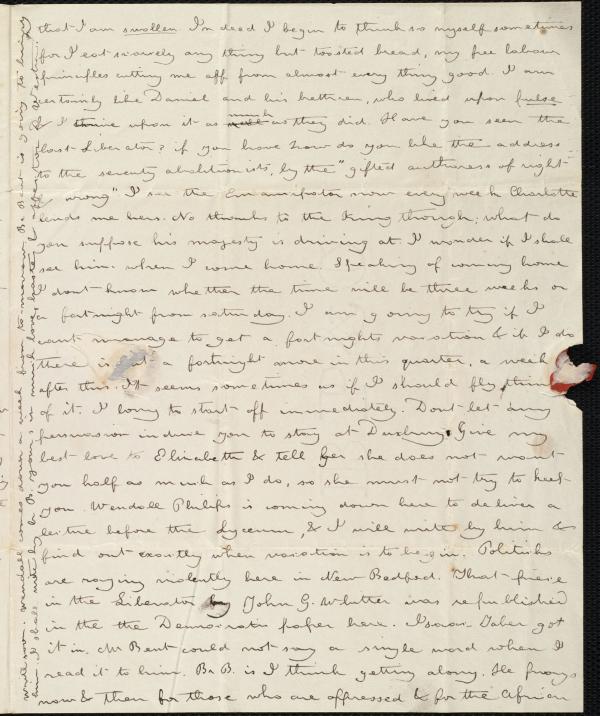 that I am swollen Indeed I begin to think so myself sometimes
for I eat scarcely any thing but toasted bread, my free labour
principles cuting me off from almost every thing good. I am
certainly like Daniel and his bethren, who lived upon pulse
& I thrive upon it as much as they did. Have you seen the
last Liberator? if you have how do you like the address
to the seventy abolitionists, by the "gifted authoress of right
& wrong" I see the Emancipator now every week Charlotte
lends me hers. No thanks to the King through; what do
you suppose his majesty is driving at. I wonder if I shall
see him when I come home. Speaking of coming home
I dont know whether the time will be three weeks or
a fortnight from saturday. I am going to try if I
cant manage to get a fortnights vacation & if I do
there is but a fortnight more in this quarter, a week
after this. It seems sometimes as if I should fly, think
of it. I long to start off immediately. Dont let any
persuasion induce you to stay at Duxbury. Give my
best love to Elizabeth & tell her she does not want
you half as much as I do, so she must not try to keep
you. Wendell Philips is coming down here to deliver a
lectue before the Lyceum, & I will write by him &
find out exactly when vacation is to begin. Politicks
are raging violently here in New Bedford. That piece
in the Liberator by John G. Whitter was republished
in the the Democratic paper here. Isaac Taber got
it in. Mr Bent could not say a single word when I
read it to him. Br B. is I think getting along. He prays
now & then for those who are oppressed & for the African
write soon. Wendell comes down a week from to-morrow. Br Bent is going to bring
him. I shall write by Br B. yours in much love & haste & affection